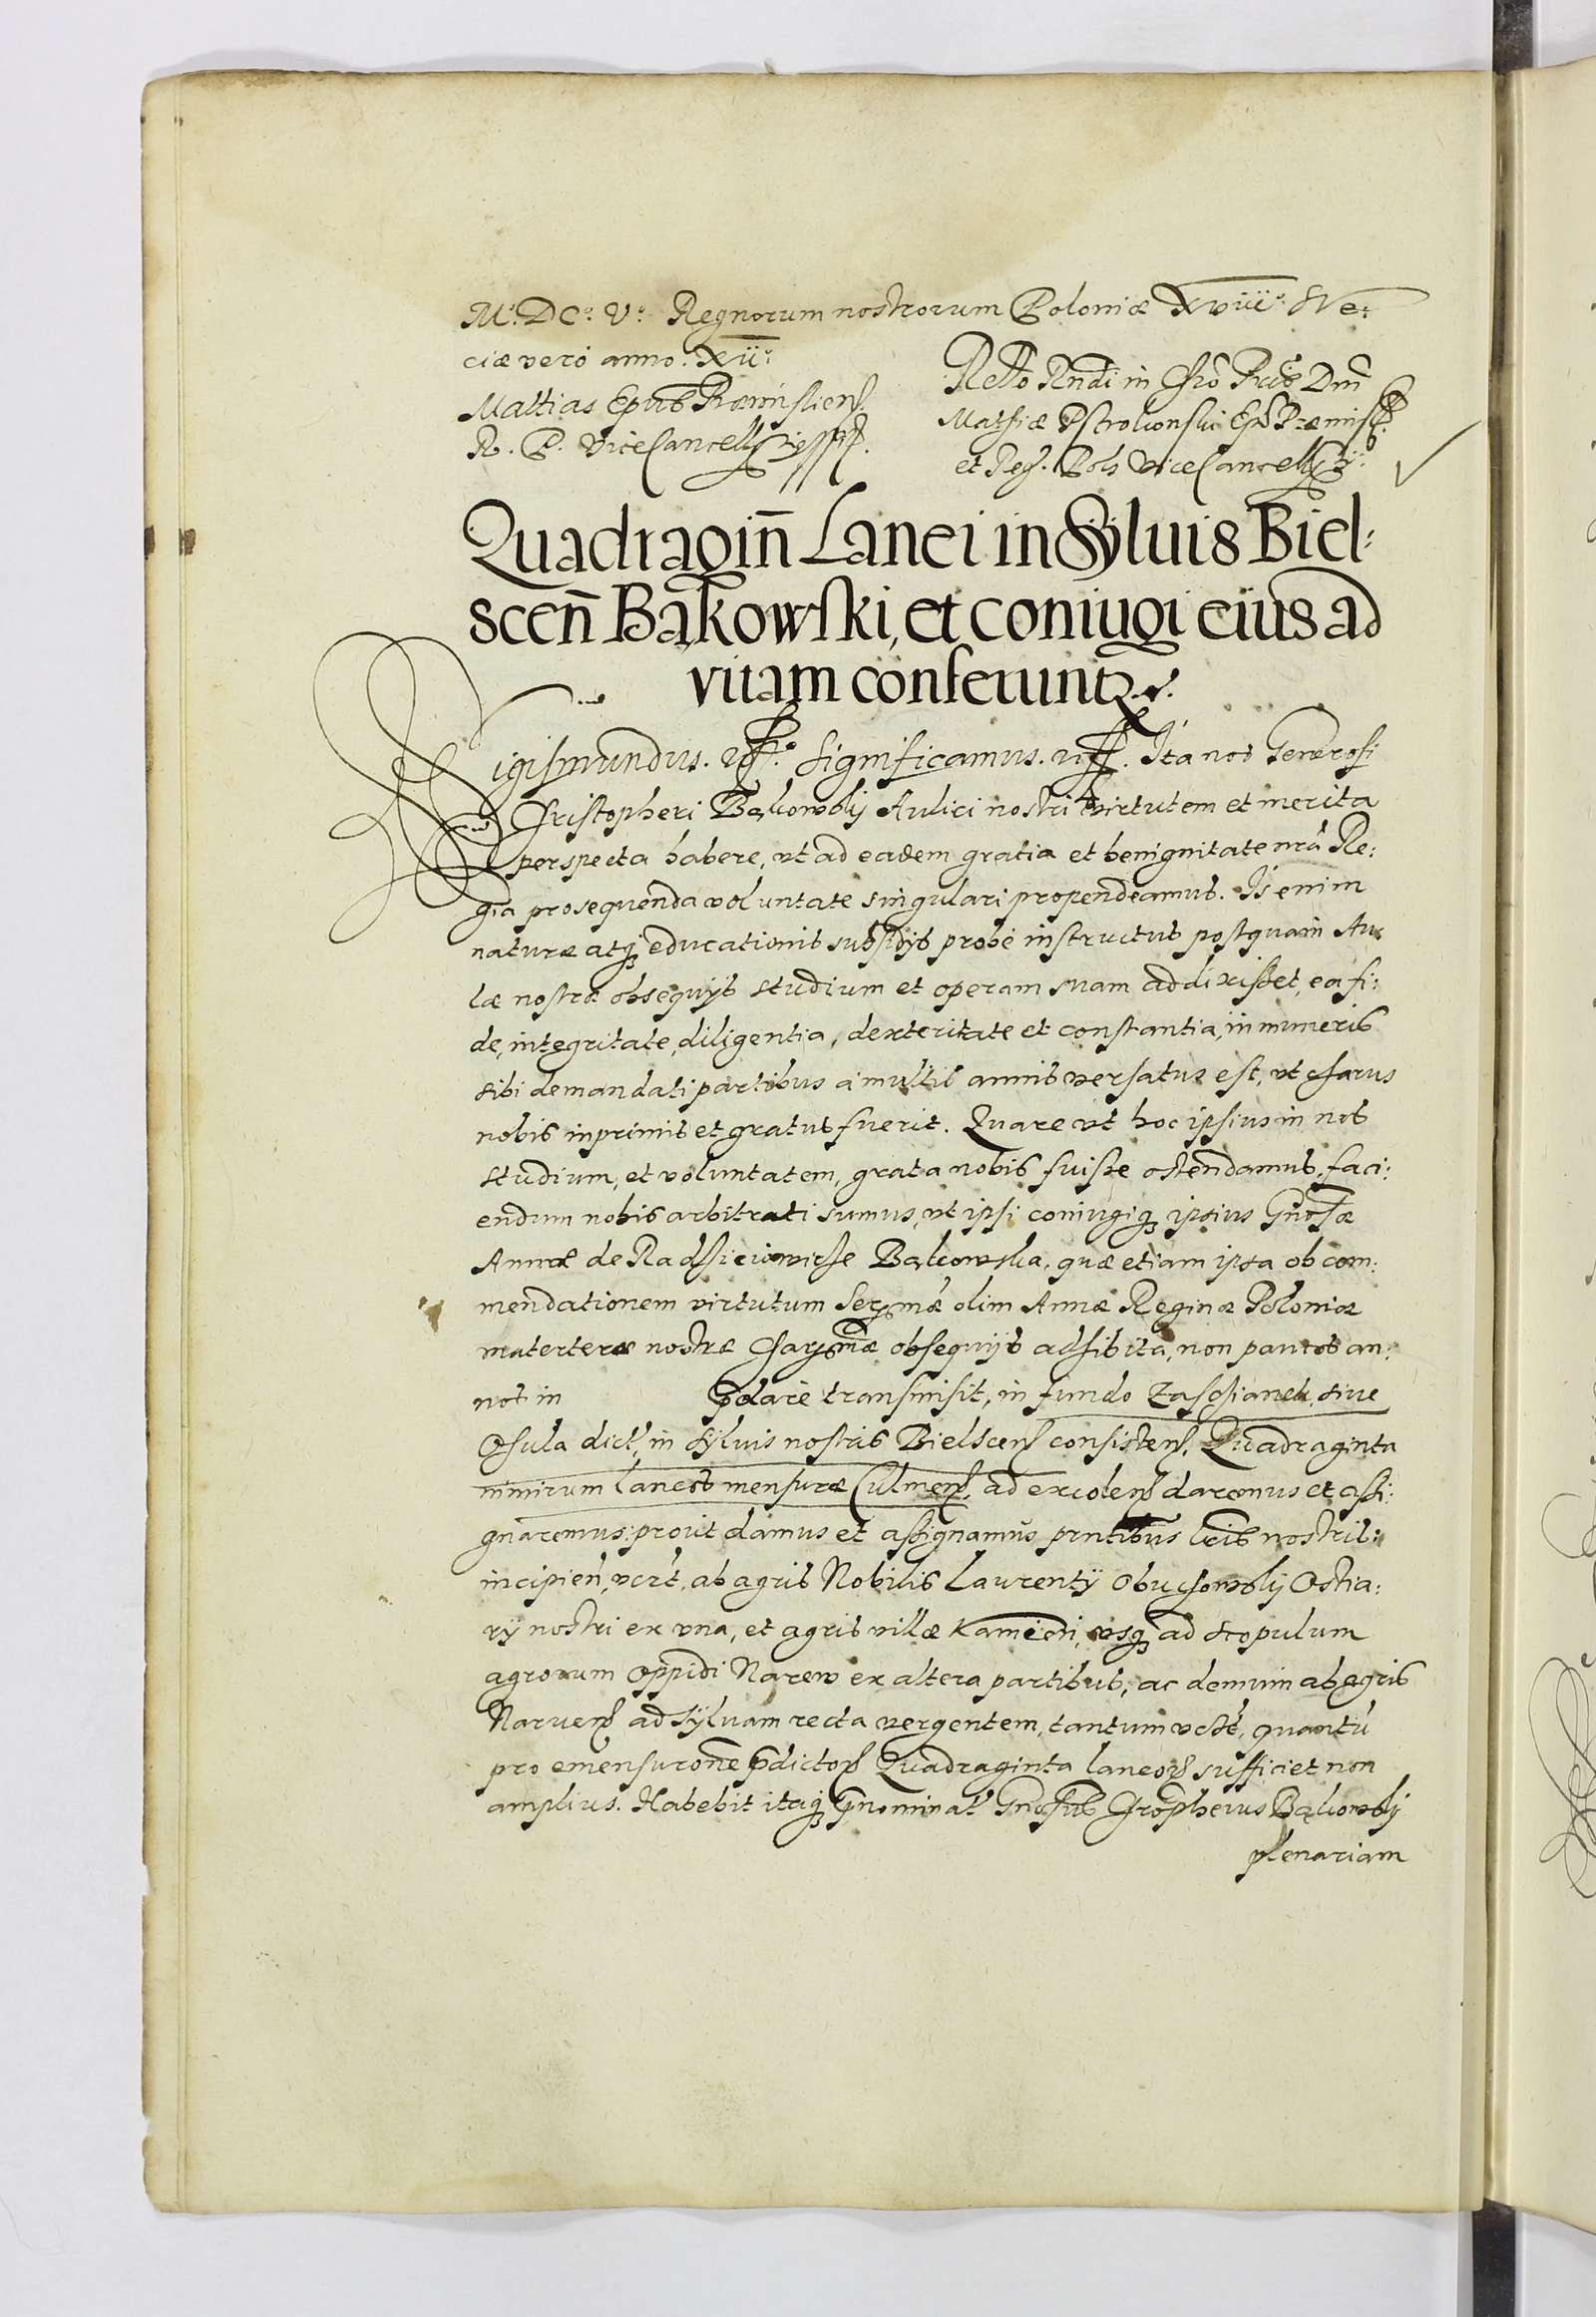 M.º D C.º V.º Regnorum nostrorum Poloniæ XVIII.º Sve:
ciæ vero anno. XII.º
Mattias Epus Præmislien.
R. P. Vice Cancellrius sspt.
Rello Rndi in Chro Pris Dni
Mathiæ Pstrokonski Epi Præmisl.
et Reg. Pols Vice Cancellrij.
Quadragin̄ Lanei in Syluis Biel:
scen̄ Bąkowski, et coniugi eius ad
vitam conferuntr.
Sigismundus. Significamus. Ita nos Generosi
Christopheri Bąkowskij Aulici nostri virtutem et merita
perspecta habere, vt ad eadem gratia et benignitate nrã Re:
gia prosequenda voluntate singulari propendeamus. Is enim
naturæ atq educationis subsidijs probe instructus postquam Au
læ nostræ obsequijs studium et operam suam addixisset, ea fi:
de, integritate, diligentia, dexteritate et constantia, in muneris
sibi demandati partibus a multis annis versatus est, vt charus
nobis inprimis et gratus fuerit. Quare vt hoc ipsius in nos
studium, et voluntatem, grata nobis fuisse ostendamus, faci:
endum nobis arbitrati sumus, vt ipsi coniugiq ipsius Gnosæ
Annæ de Radziciowicze Bąkowska, quæ etiam ipsa ob com:
mendationem virtutum Serxmæ olim Annæ Reginæ Poloniæ
materteræ nostræ Charxmæ obsequijs adhibita, non paucos an:
nos in pclare transmisit, in fundo Zaschianek, siue
Osula dict, in syluis nostris Bielscen consisten. Quadraginta
nimirum laneos mensuræ Culmen, ad excolen daremus et assi:
gnaremus: prout damus et assignamus pntibus lris nostris:
incipien, vczt, ab agris Nobilis Laurentij Obuchowskij Ostia:
rij nostri ex vna, et agris villæ Kamieni, vsq ad scopulum
agrorum Oppidi Narew ex altera partibus, ac demum ab agris
Narven ad syluam recta vergentem, tantum vczt, quantũ
pro emensurone pdictor Quadraginta laneor sufficiet non
amplius. Habebit itaq pnominat Gnosus Chropherus Bąkowskij
plenariam